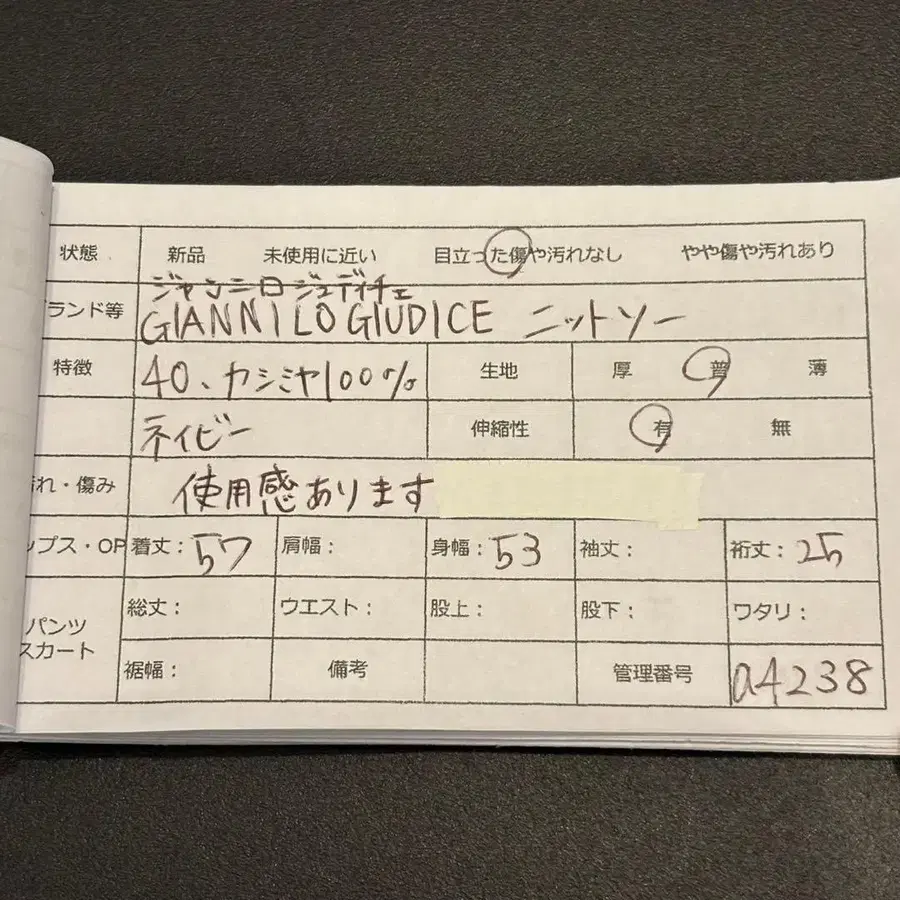 状態 新品 未使用に近い 目立った傷や汚れなし やや傷や汚れあり
ジャンニロジュディチェ
ランド等 GIANNI LO GIUDICE ニットソー
特徴 40、カシミヤ100% 生地 厚 普 薄
ネイビー 伸縮性 有 無
れ・傷み 使用感あります
ップス・OP 着丈：57 肩幅： 身幅：53 袖丈： 裄丈：25
パンツ 総丈： ウエスト： 股上： 股下： ワタリ：
スカート 裾幅： 備考 管理番号 a4238